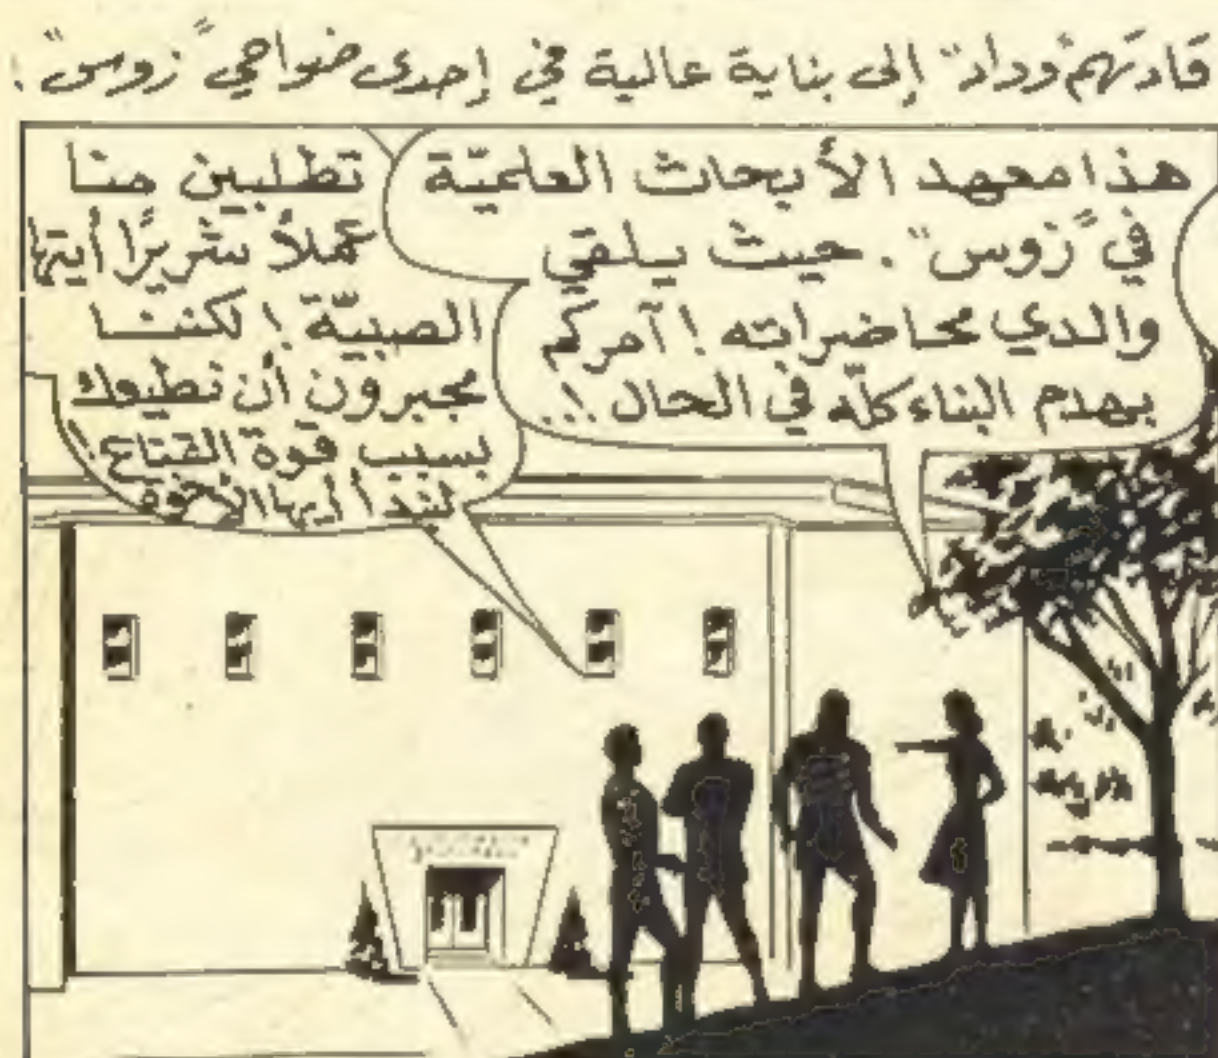 قادتهم "وداد" إلى بناية عالية في إحدى ضواحي "زوس".
هذا معهد الأبحاث العلميّة
في "زوس". حيث يلقي
والدي محاضراته! آمركم
بهدم البناء كلّه في الحال!!.
تطلبين منا
عملاً شريرًا أيتها
الصبيّة! لكننا
مجبرون أن نطيعك
بسبب قوة القناع!
لنبدأ أيها الأخوة